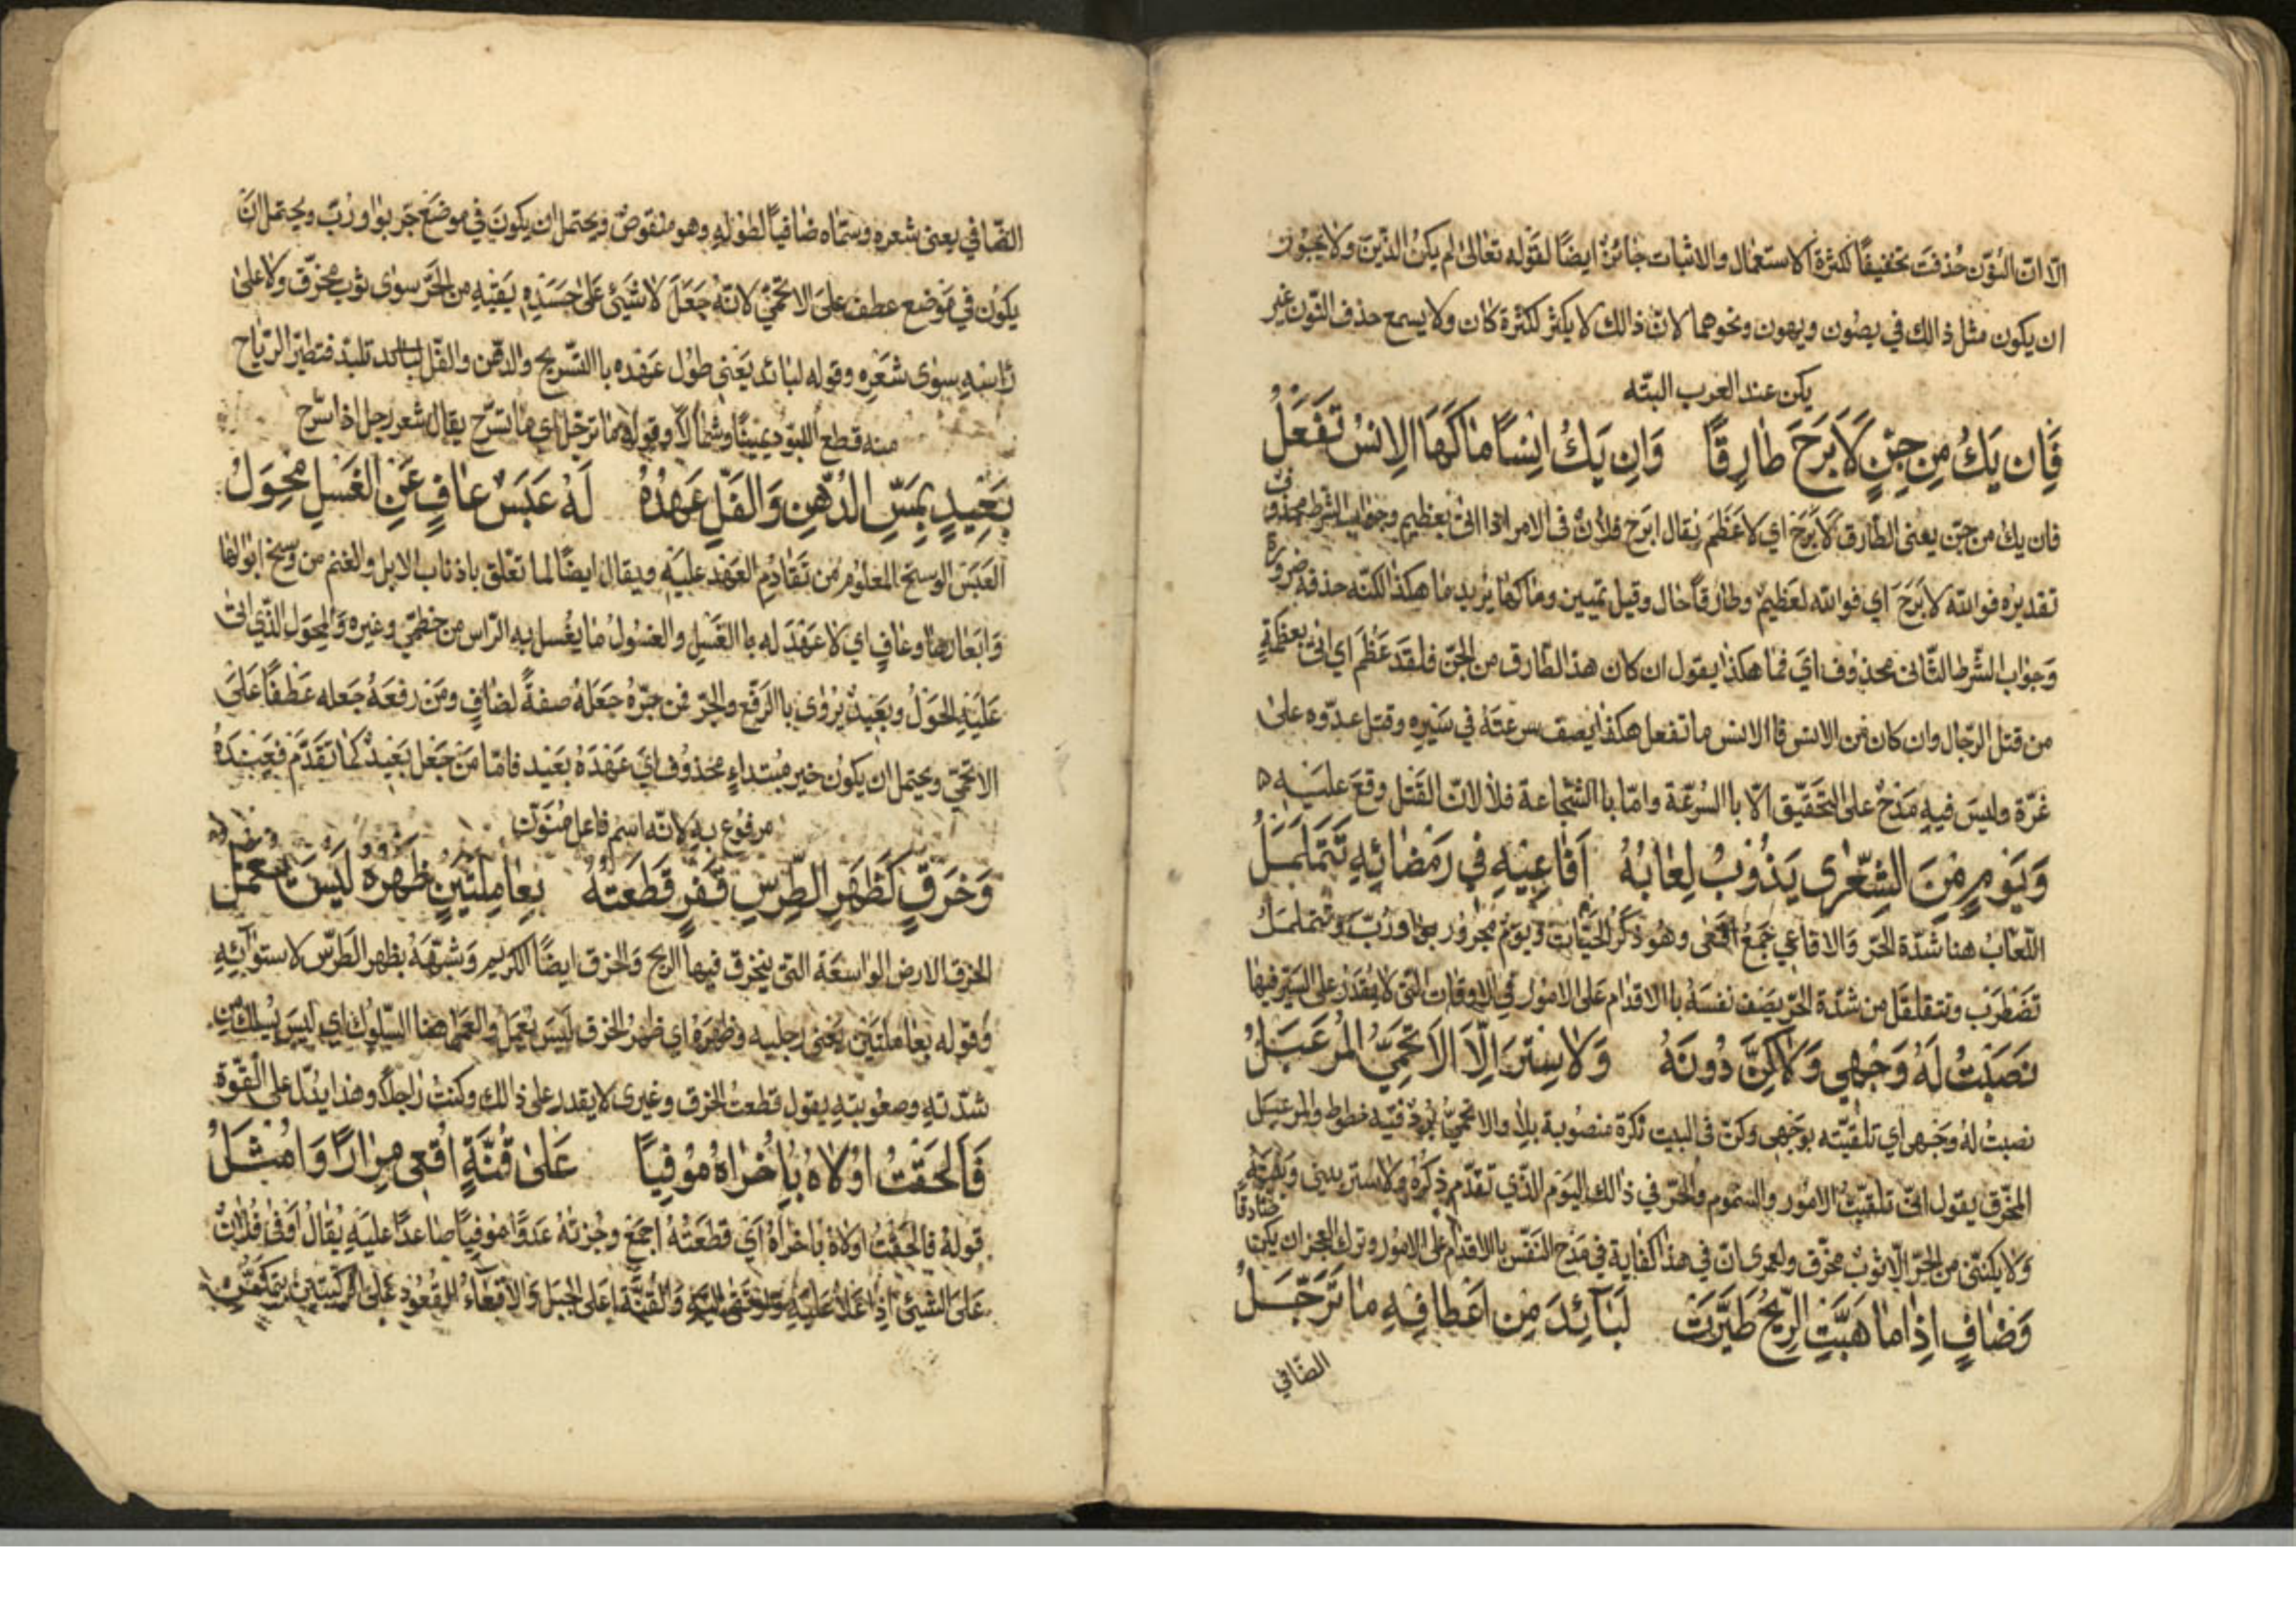 الّا انّ النّون حُذفت تخفيفًا لكثرة الاستعمال والاثبات جائزٌ ايضًا لقوله تعالى لم يكن الذين ولا يجوز
ان يكون مثل ذالك في يصُون ويهون ونحوهما لانّ ذالك لا يكثر لكثرة كان ولا يسمع حذف النّون غير
يكن عند العرب البتّه
فَاِن يَكُ مِن جِنٍّ لَاَبرَحَ طارِقًا وَاِن يَكُ اِنسًا ماكَهَا الاِنسُ تَفعَلُ
فان يك من جنّ يعنى الطّارق لَاَبرَحَ اي لاعَظَمَ يقال ابرَحَ فلانٌ فى الامر اذا اتى بعظيم وجواب الشرط محذوف
تقديره فوالله لابَرَحَ اي فوالله لعَظيمٌ وطارقاً حال وقيل تمييز وماكها يريد ما هكذا لكنّه حذفه ضرورة
وَجواب الشّرط الثّانى محذوف اي فما هكذا يقول ان كان هذا الطّارق من الجنّ فلقد عَظُمَ اي اتى بعظمَةٍ
من قتل الرّجال وان كان من الانس فاالانس ما تفعل هكذا يصف سرعتَهُ في سَيرِه وقتل عدوّه على
غرّة وليسَ فيهِ مَدحٌ على التحقيق الّا باالسُّرعَة وامّا باالشّجاعة فلا لانّ القَتل وقعَ عليَهِ ه
وَيَومٍ مِنَ الشِّعرٰى يَذُوبُ لِعَابُهُ اَفَاعِيهِ فِي رَمضَائِهِ تَتَمَلمَلُ
اللّعابُ هنا شدّة الحرّ وَالافاعي جَمعُ افعى وهو ذكَرُ الحيَّات ويَومٍ مجرُور بواو رُبّ وتتملمَلُ
تَضطَربُ وتتقلقل من شدّة الحرّ يصَف نفسَهُ باالاقدام عَلى الامُور في الاوقات التى لا يُقدر على السّير فيها
نَصَبتُ لَهُ وَجهِي وَلَاكِنَّ دُونَهُ وَلَا سِترَ اِلَّا الاَتحَمِيُّ المُرَعبَلُ
نصبتُ لهُ وجهى اي تلقّيته بوَجهى وكنّ فى البيت نكرة منصُوبة بلا والاتحميُّ بُردٌ فيه خطوط والمرعبَل
المخرّق يقول انّى تلقّيتُ الامُور والسّمُوم والحرّ في ذالك اليَوم الّذي تقدّم ذكره ولا ستر بينى وبينَهُ
وَلا يكنّنى من الحرّ الّا ثوبٌ مخرّق ولعمرى انّ في هذا كفاية في مَدح النّفس باالاقدام على الامُور وترك العجز ان يكن صَادقًا
وَضَافٍ اِذا ما هَبَّتِ الرِّيحُ طَيَّرَت لَبَائِدَ مِن اَعطَافِهِ مَا تُرَجَّلُ
الضّافي
الضّافي يعنى شعره وسَمّاه ضافيًا لطُولهِ وهو منقوصٌ ويحتمل ان يكونَ في موضع جر بواو رُبّ ويحتمل ان
يكون في مَوضع عطف على الاتحميّ لانّهُ جَعَلَ لا شَيئَ عَلى جَسَدِهِ يَقيهِ من الحَرّ سوى ثوب مخرّق ولا على
رَاسِهِ سِوٰى شَعَرِه وقوله لبائد يَعني طول عَهده باالتّسريح والدّهن والفَل تلبّد فتطيّر الرّياح
منه قطع اللبود يمينًا وشمالًا وقوله ما ترجّل اي ما تسرّح يقال شعر رجل اذا سُرّح
بَعِيدٍ بِمَسِّ الدُّهنِ وَالفَلِّ عَهدُهُ لَهُ عَبَسٌ عافٍ عَنِ الغَسلِ مُحوِلُ
العَبَسُ الوسخ المعلوم من تَقَادُمِ العَهد عليَهِ ويقال ايضًا لما تعَلّق باذناب الابل والغنم من وسخ ابوالها
وَابعَارها وعَافٍ اي لا عَهدَ له باالغَسلِ والغسُولُ ما يغسل به الرّاس من خطميّ وغيره وَالمحوَل الّذي اتى
عَليهِ الحَولُ وبَعيدٌ يُروٰى باالرّفع والجرّ فمن جرّهُ جعَلهُ صفةً لضافٍ ومَن رفعَهُ جَعله عَطفًا عَلى
الاتحميّ ويحتمل ان يكون خبر مُبتداءٍ محذوف اي عَهدَهُ بَعيد فامّا مَن جَعَل بَعيد كما تقَدّم فعَهدُهُ
مرفوع بهِ لانّه اسم فاعل منوّن
وَخَرقٍ كَظَهرِ الطِّرسِ قَفرٍ قَطَعتُهُ بِعَامِلَتَينِ ظَهرُهُ لَيسَ يُعمَلُ
الخرق الارض الواسعَة التى ينخرق فيها الريح وَالخرق ايضًا الكريم وَشَبّهَهُ بظهر الطَرّس لاستوائهِ
وَقوله بعَاملتَين يَعنى رجليه وظهرَهُ اي ظهرُ الخرق ليس يعمل والعمل هنا السّلوك اي ليسَ يُسلك من
شدّتهِ وصعُوبتهِ يقول قطعتُ الخرق وغيرى لا يقدر على ذالك وكنتُ راجلًا وهذا يدُلّ على القوّة
فَاَلحَقتُ اولَاهُ بِاُخرَاهُ مُوفِيًا عَلى قُنَّةٍ اُقعِي مِرَارًا وَاَمثُلُ
قولهُ فالحقتُ اولاهُ باخراهُ اَي قطعتُهُ اجمَع وجُزتهُ عَدوًا مُوفِيًا صَاعدًا عليهِ يُقالُ اَوفى فُلانٌ
عَلى الشّيئ اذا عَلا عَليهِ وَالقُنّة اعلى الجبَل وَالاقعَاءُ القُعُود عَلى الرّكبتين